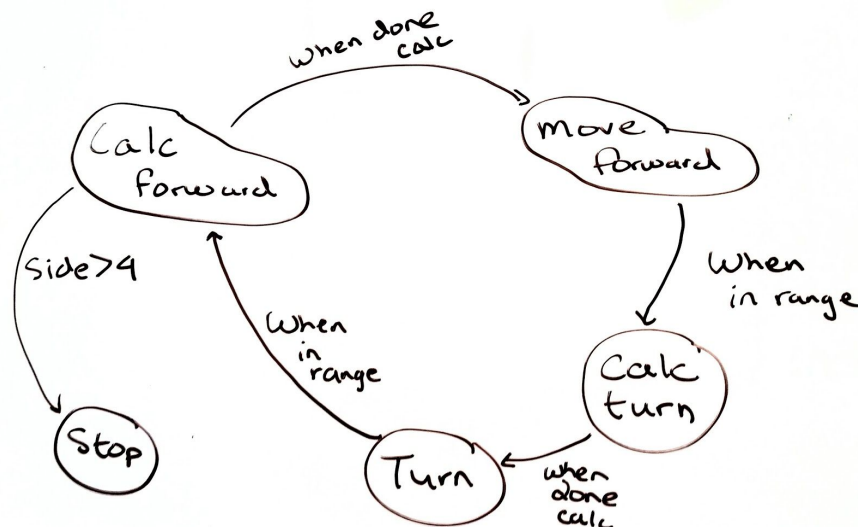 When done
calc
Calc
forward
move
forward
Side>4
When
in range
When
in
range
Calc
turn
Stop
Turn
when
done
calc